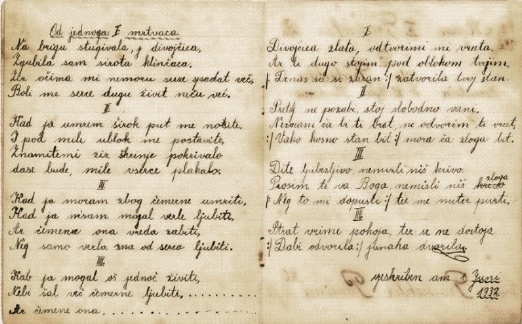 Od jednoga I mrtvaca
Na brigu stugivala, j divojčica,
Zgubila sam sirota klinčaca.
Zis očima mi nemoru suze spadat već,
Bole me serce dugu živit neću već.
II
Kad ja umrem širok put me nosite,
I pod mile ublok me postavite,
Znamitemi ziz škrinje pokrivalo
dase bude, mile vserce plakalo.
III
Kad ja moram zbog čemerne umriti,
Kad ja nisam mogal verle ljubiti.
Ar čemerna ona vreda rabiti,
Nig samo verla zna od serca ljubili.
IIII
Kab ja mogal oš jednoč živiti,
Nebi šal već čemerne ljubiti,
Ar čemerne ona
I
Divojčica zlata, odtvorimi me vrata,
Ar ti dugo stojim pod oblokom tvojim.
:/ Dnas sa si zaran :/ zatvorila tvoj stan.
II
Pretej ne pozabi, stoj slobodno vani.
Neznam ča bi ti brat, ne odvorim te vrat,
:/ Vako kosno stan bit :/ mora ča zloga bit.
III
Dite ljubezljivo nemisli niš krivo.
Prosim te va Boga nemisli niš zloga
:/ Neg to mi dopusti :/ ter me nuter pusti.
IIII
Brat vrime pohoja, ter se ne dostoja
:/ Dabi odvorila :/ junaka dvorila.
geskriben am 2 Juni
1932